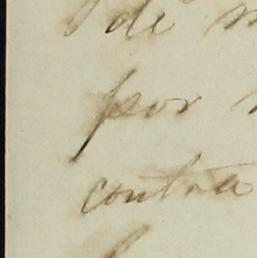 de
por
contra